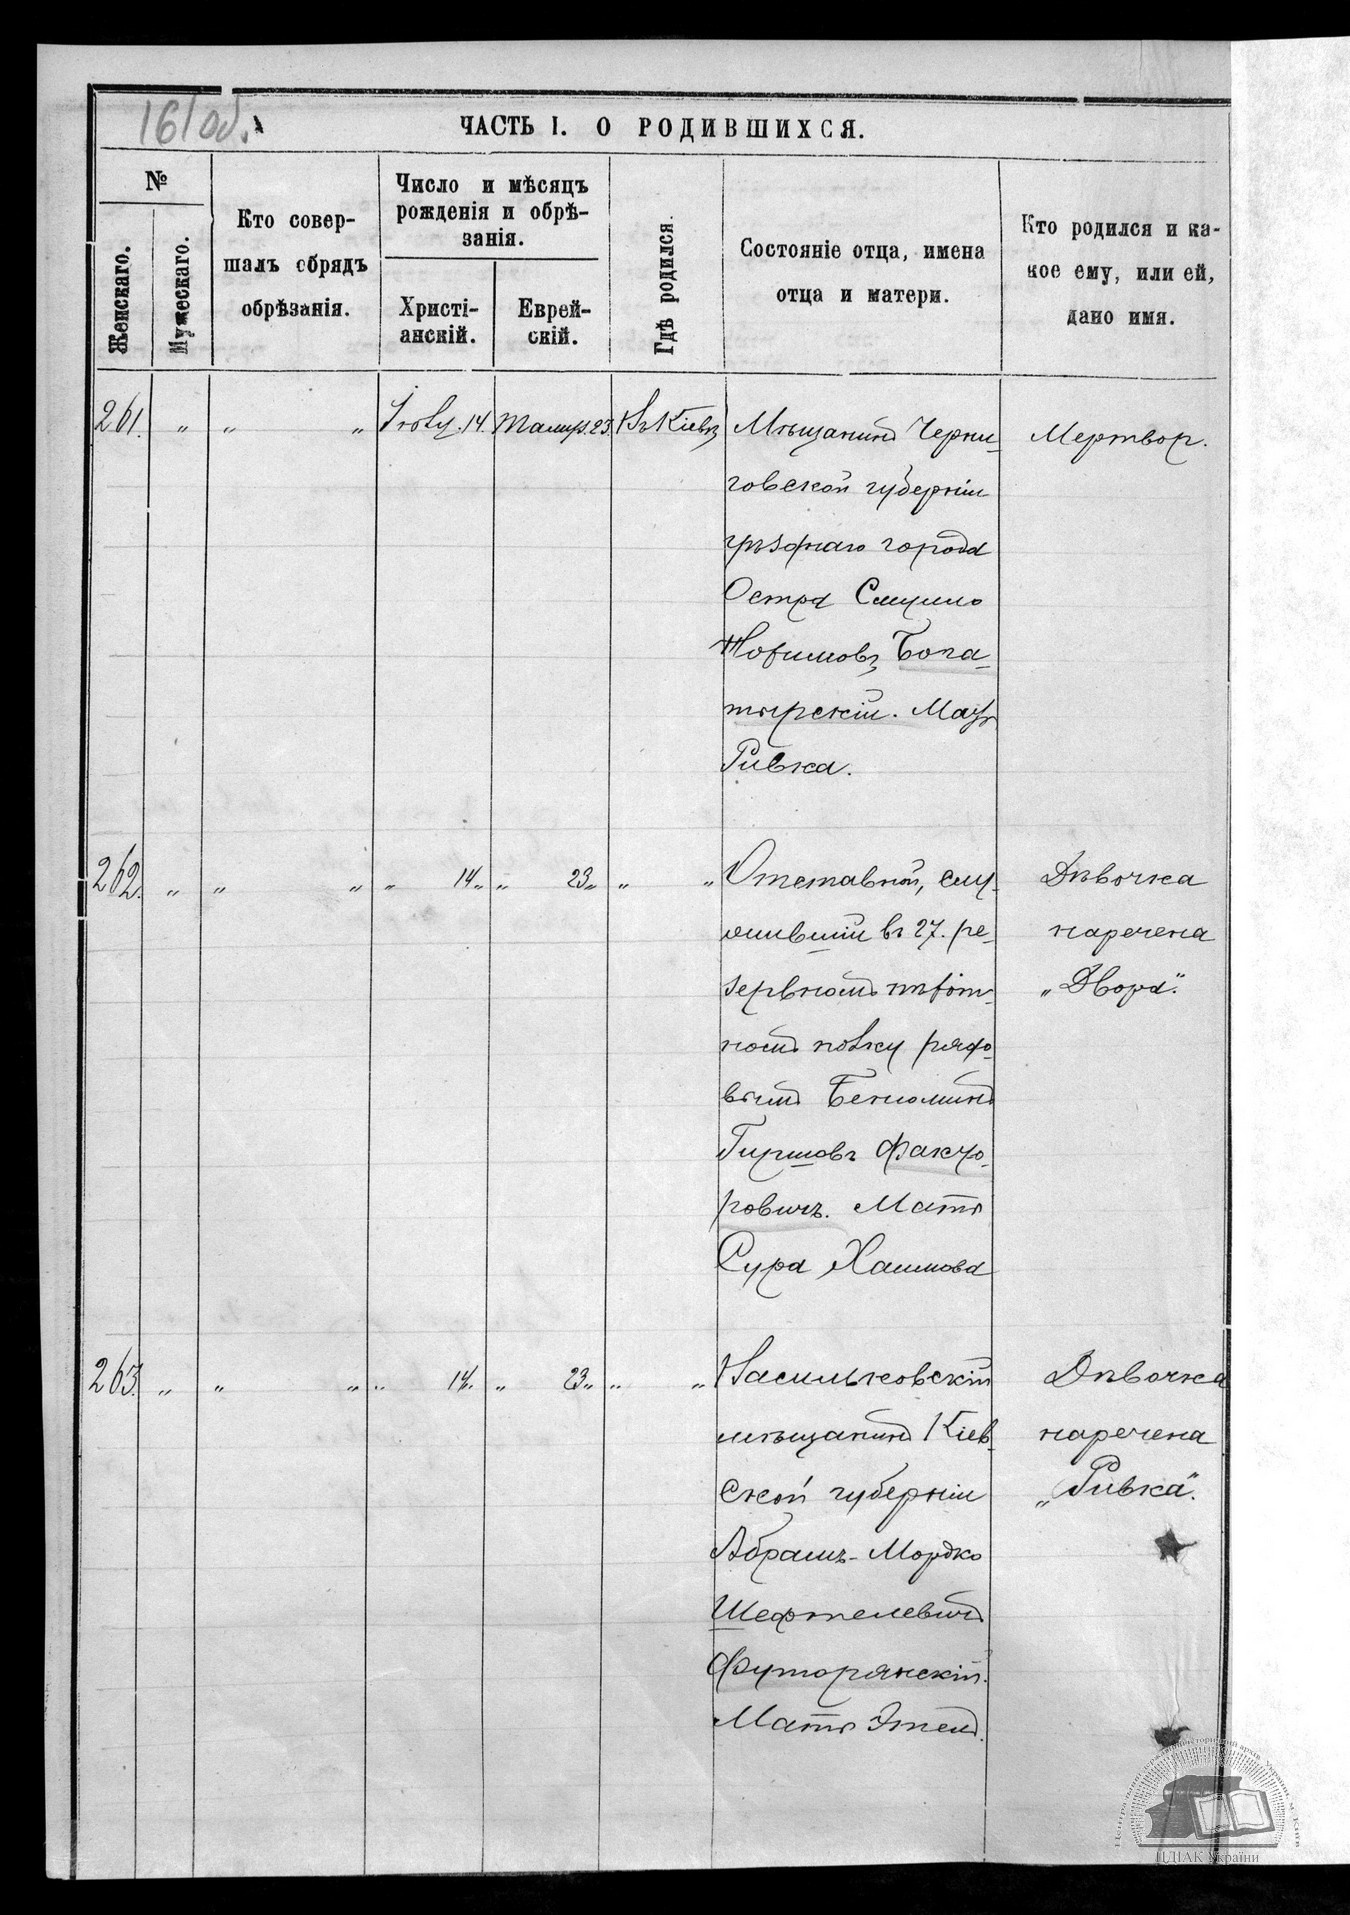 161 об.
ЧАСТЬ I. О РОДИВШИХСЯ.
№
Женскаго.
Мужескаго.
Кто совер-
шалъ обрядъ
обрѣзанія.
Число и мѣсяцъ
рожденія и обрѣ-
занія.
Христі-
анскій.
Еврей-
скій.
Гдѣ родился.
Состояніе отца, имена
отца и матери.
Кто родился и ка-
кое ему, или ей,
дано имя.
261. „ „ „ Іюль. 14. Тамуз. 23. Въ Кіевѣ
Мѣщанинъ Черни-
говской губерніи
уѣзднаго города
Остра Смуило
Богa-
тырскій. Мать
Ривка.
Мертвор.
262. „ „ „ „ 14. „ 23. „ „
Отставной, слу-
жившій въ 27. ре-
зервномъ пѣхот-
номъ полку рядо-
вымъ Беніоминъ
Гиршовъ Факто-
ровичъ. Мать
Сура Хаимова
Дѣвочка
наречена
„Двора“.
263. „ „ „ „ 14. „ 23. „ „
Васильковскій
мѣщанинъ Кіев-
ской губерніи
Абрамъ-Мордко
Шефтелевичъ
Футорянскій.
Мать Этель.
Дѣвочка
наречена
„Ривка“.
ЦДІАК України